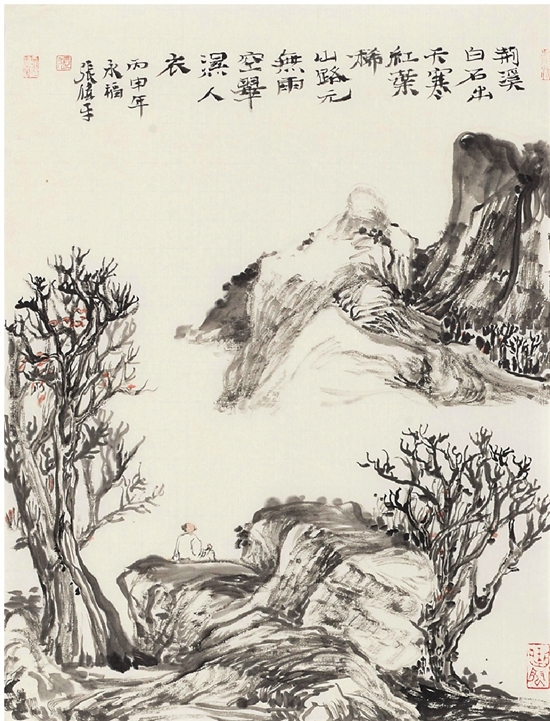 荊溪
白石出
天寒
紅葉
稀
山路元
無雨
空翠
濕人
衣
丙申年
永福
張